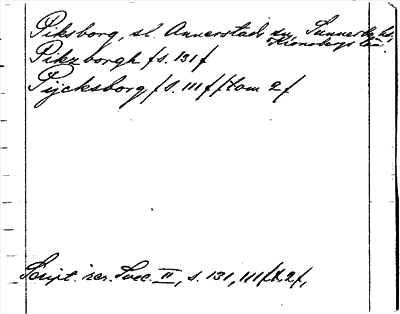 Piksborg, sl. Annerstads sn, Sunnerbo hd,
Kronobergs län.
Pikzborgh /s. 131/
Pijcksborg /s. 111/ /tom 2/
Script. rer. Svec. II, s. 131, 111/t. 2/,